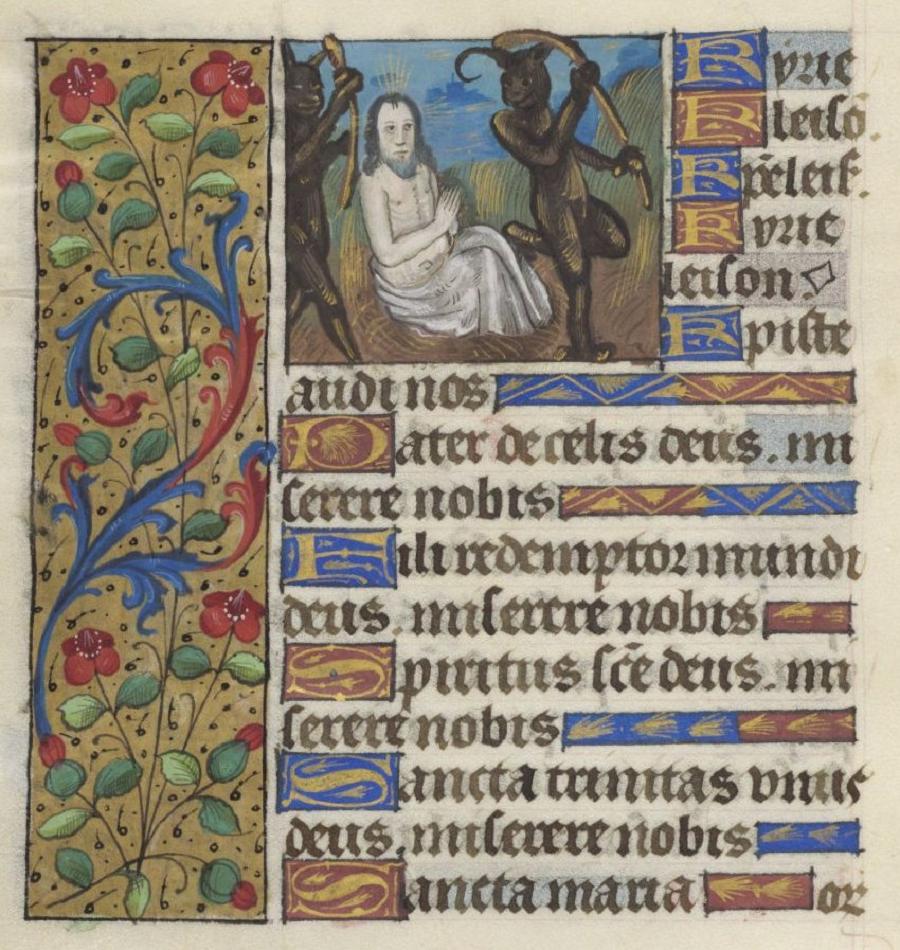 Kyrie
Eleisō.
Xp̄eleiſ.
Kyrie
leison
Xpiste
audi nos
Pater de celis deus. mi
serere nobis
Fili redemptor mundi
deus. miserere nobis
Spiritus sc̄e deus. mi
serere nobis
Sancta trinitas vnus
deus. miserere nobis
Sancta maria or